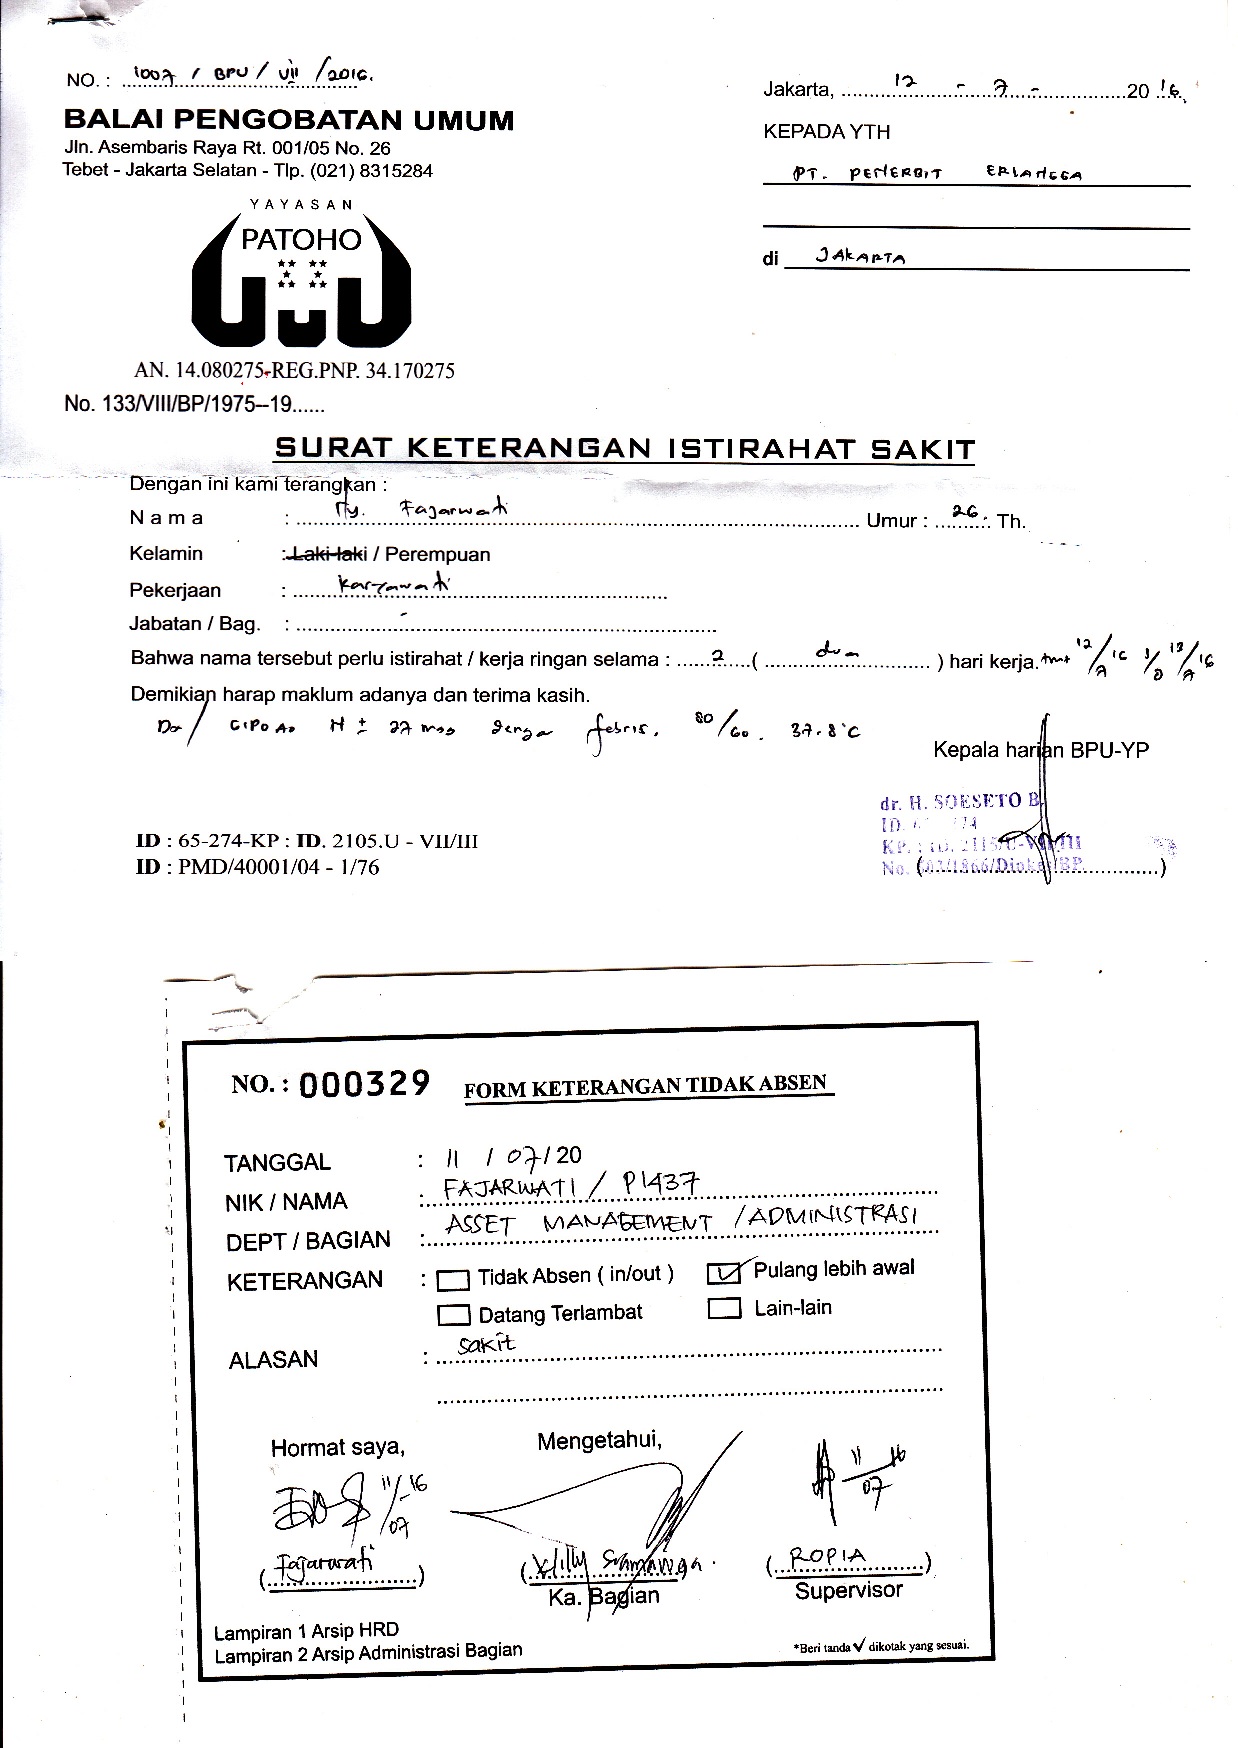 NO. : 1007 / BPU / VII / 2016.
BALAI PENGOBATAN UMUM
Jln. Asembaris Raya Rt. 001/05 No. 26
Tebet - Jakarta Selatan - Tlp. (021) 8315284
YAYASAN
PATOHO
AN. 14.080275-REG.PNP. 34.170275
No. 133/VIII/BP/1975--19......
Jakarta, 12 - 7 - 2016
KEPADA YTH
PT. PENERBIT ERLANGGA
di JAKARTA
SURAT KETERANGAN ISTIRAHAT SAKIT
Dengan ini kami terangkan :
Nama : Ny. Fajarwati Umur : 26 Th.
Kelamin : Laki-laki / Perempuan
Pekerjaan : Karyawati
Jabatan / Bag. : -
Bahwa nama tersebut perlu istirahat / kerja ringan selama : 2 ( dua ) hari kerja.
Demikian harap maklum adanya dan terima kasih.
dengan febris. 80/60. 37.8°C
Kepala harian BPU-YP
dr. H. SOESETO B
ID : 65-274-KP : ID. 2105.U - VII/III
ID : PMD/40001/04 - 1/76
NO. : 000329 FORM KETERANGAN TIDAK ABSEN
TANGGAL : 11 / 07 / 20
NIK / NAMA : FAJARWATI / P1437
DEPT / BAGIAN : ASSET MANAGEMENT / ADMINISTRASI
KETERANGAN : Tidak Absen ( in/out ) Pulang lebih awal
Datang Terlambat Lain-lain
ALASAN : sakit
Hormat saya, Mengetahui,
11/07-16 11/07 16
(Fajarwati) (Willy) (ROPIA)
Ka. Bagian Supervisor
Lampiran 1 Arsip HRD
Lampiran 2 Arsip Administrasi Bagian *Beri tanda √ dikotak yang sesuai.